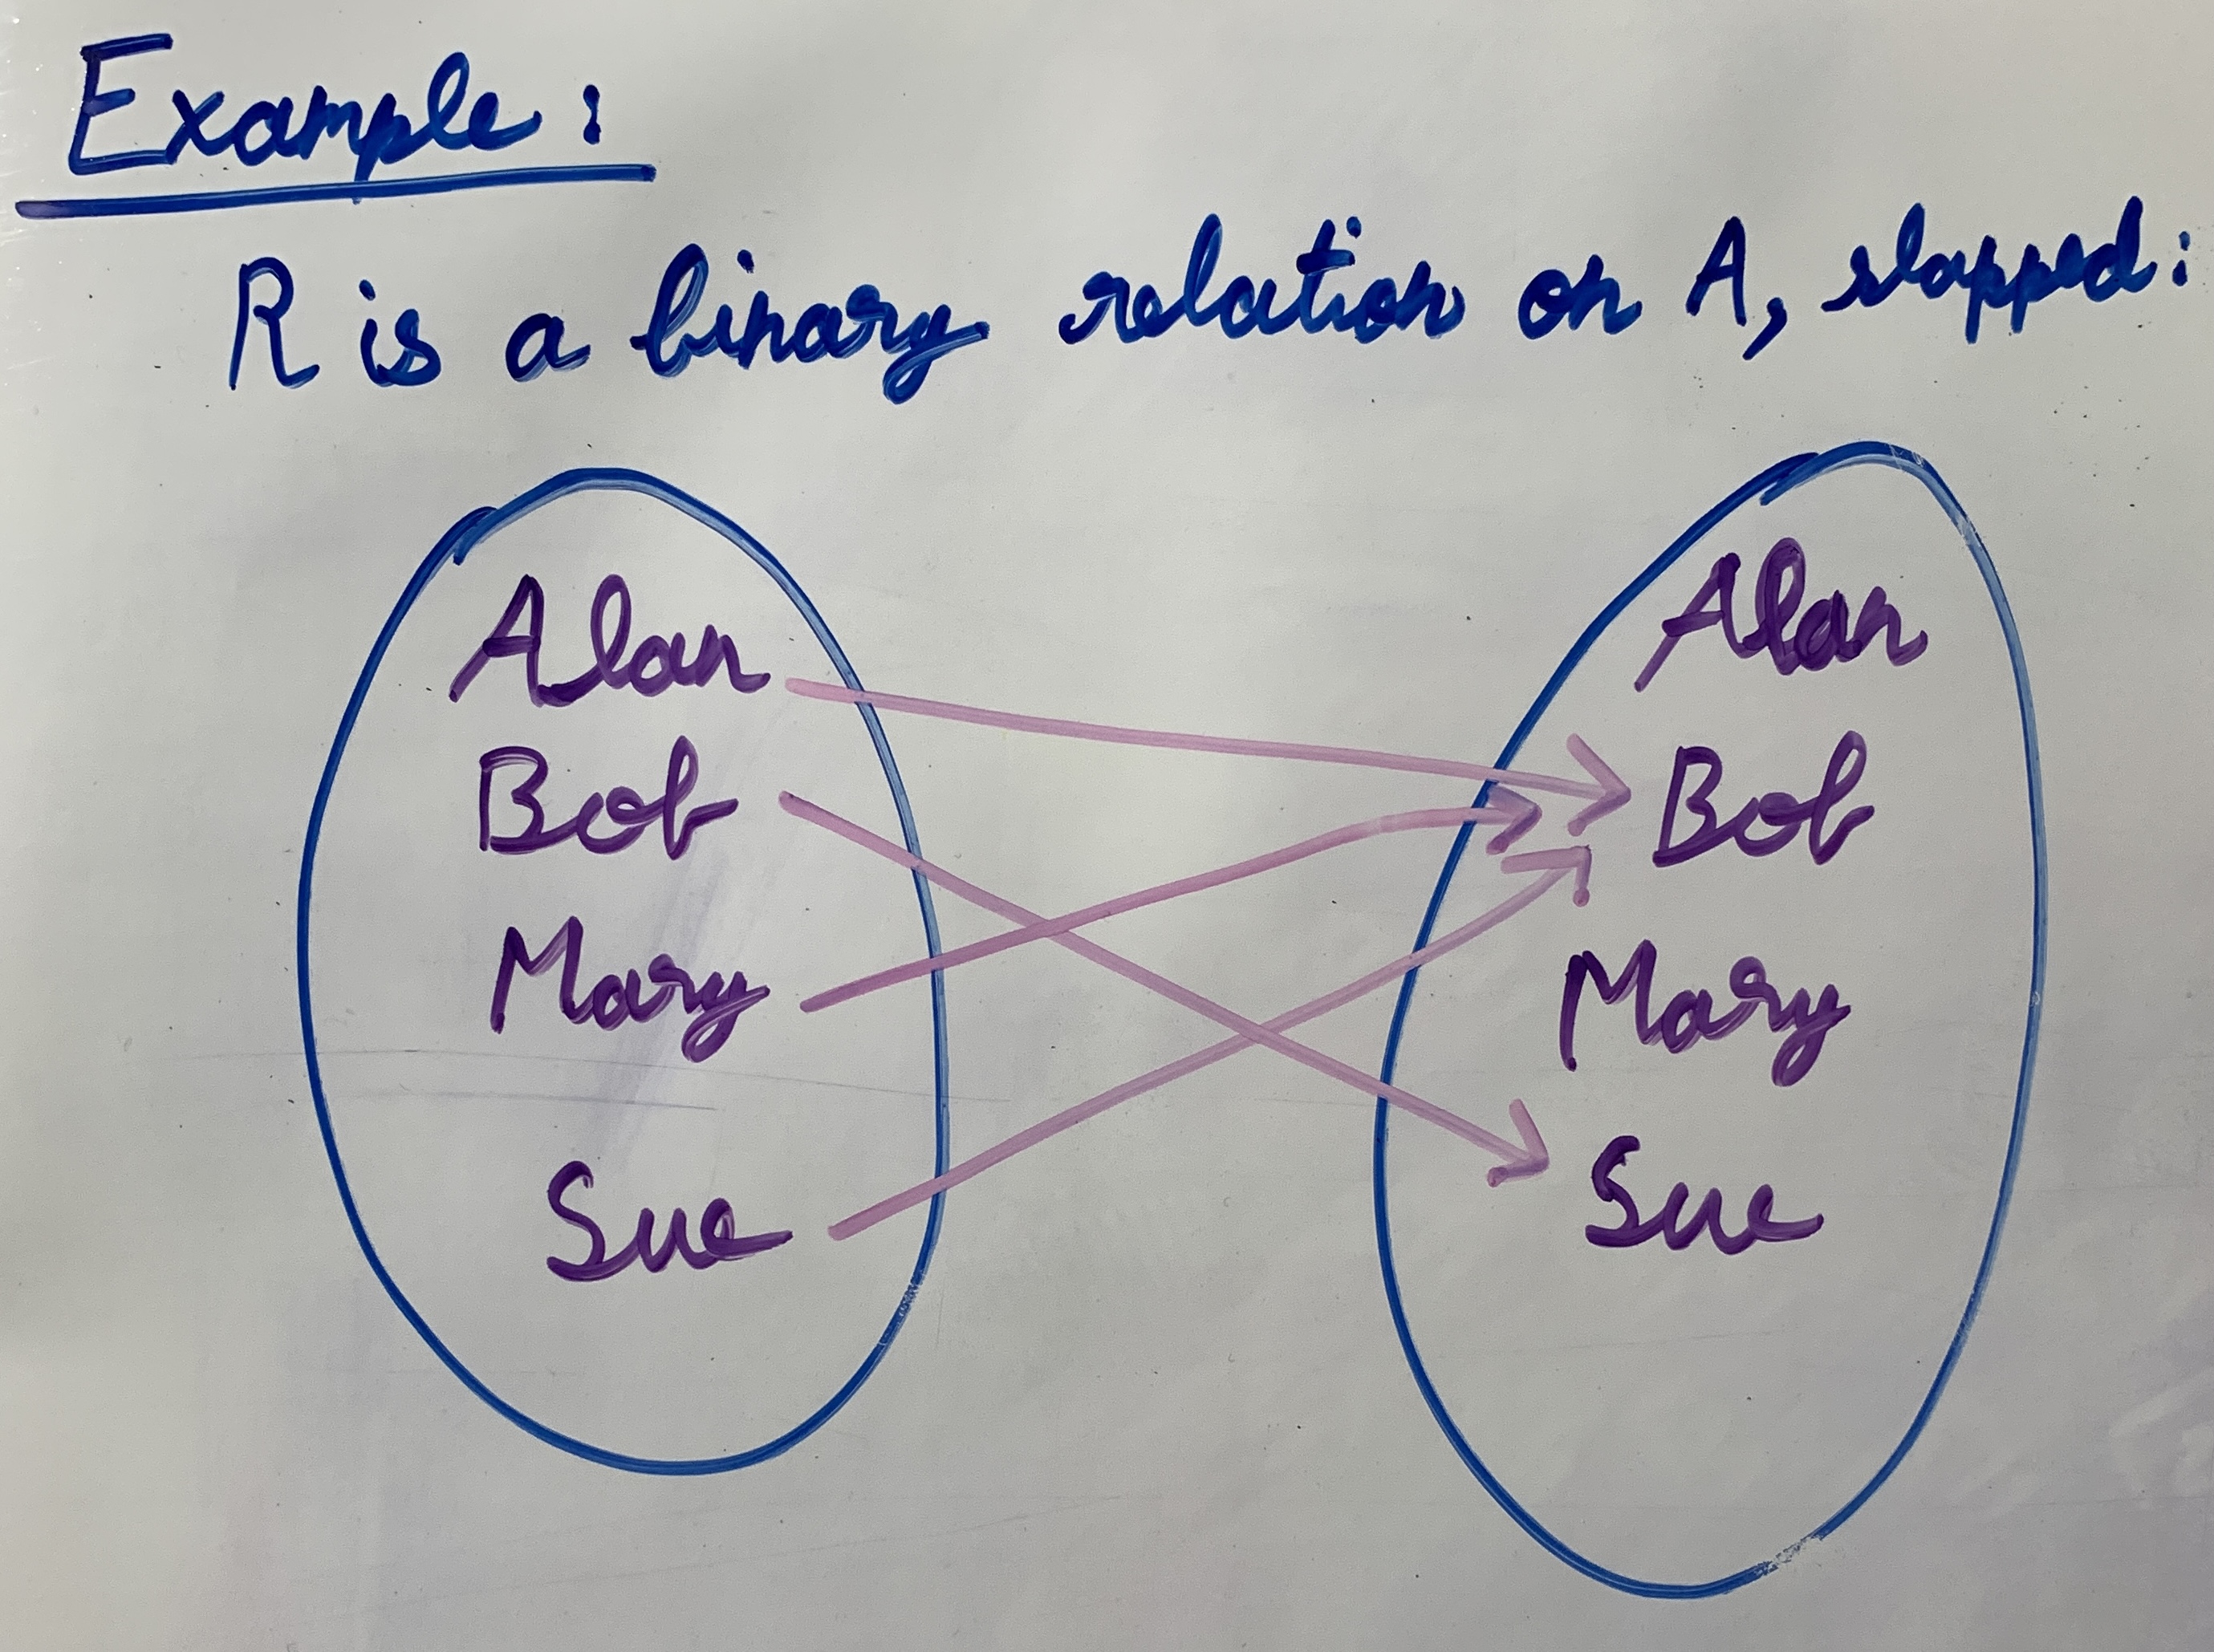 Example:
R is a binary relation on A, slapped:
Alan
Bob
Mary
Sue
Alan
Bob
Mary
Sue